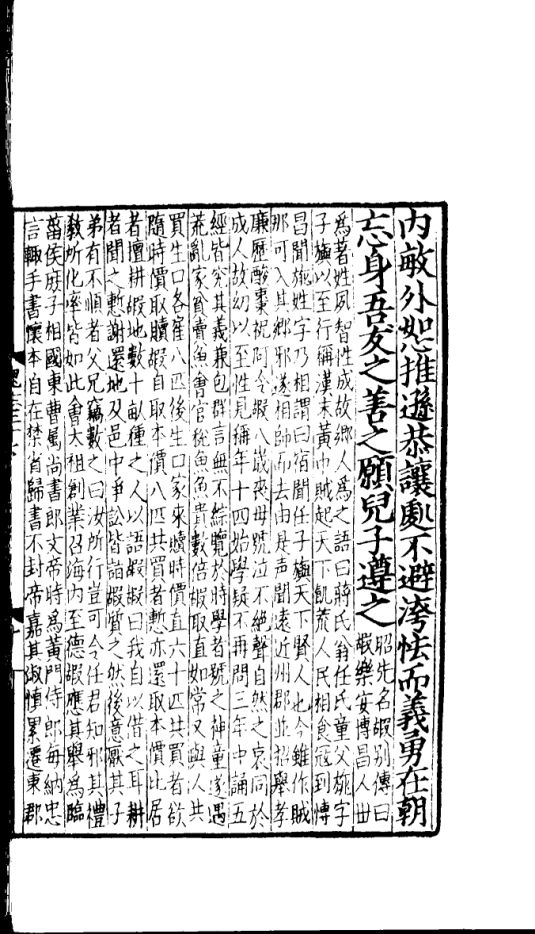 内敏外恕推遜恭讓處不避洿怯而義勇在朝
忘身吾友之善之願兒子遵之
昭先名嘏别傳曰
嘏樂安博昌人世
爲著姓夙智性成故鄉人爲之語曰蔣氏翁任氏童父旐字
子旟以至行稱漢末黃巾賊起天下飢荒人民相食寇到博
昌聞旐姓字乃相謂曰宿聞任子旟天下賢人也今雖作賊
那可入其鄉邪遂相帥而去由是声聞遠近州郡並招舉孝
廉歷酸棗祝阿令嘏八歲喪母號泣不絕聲自然之哀同於
成人故幼以至性見稱年十四始學疑不再問三年中誦五
經皆究其義兼包群言無不綜覽於時學者號之神童遂遇
荒亂家貧賣魚會官稅魚魚貴數倍嘏取直如常又與人共
買生口各雇八匹後生口家來贖時價直六十匹共買者欲
隨時價取贖嘏自取本價八匹共買者慙亦還取本價比居
者擅耕嘏地數十畝種之人以語嘏嘏曰我自以借之耳耕
者聞之慙謝還地及邑中爭訟皆詣嘏質之然後意厭其子
弟有不順者父兄竊數之曰汝所行豈可令任君知邪其禮
教所化率皆如此會大祖創業召海内至德嘏應其舉爲臨
菑侯庶子相國東曹屬尚書郎文帝時爲黃門侍郎每納忠
言輒手書懷本自在禁省歸書不封帝嘉其淑慎累遷東郡